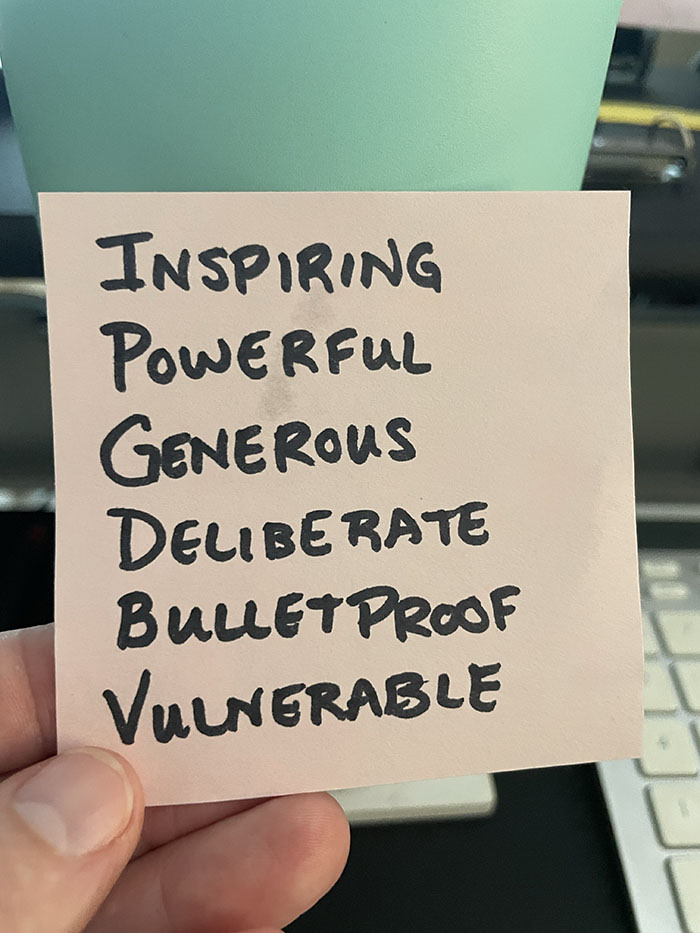 INSPIRING
POWERFUL
GENEROUS
DELIBERATE
BULLETPROOF
VULNERABLE